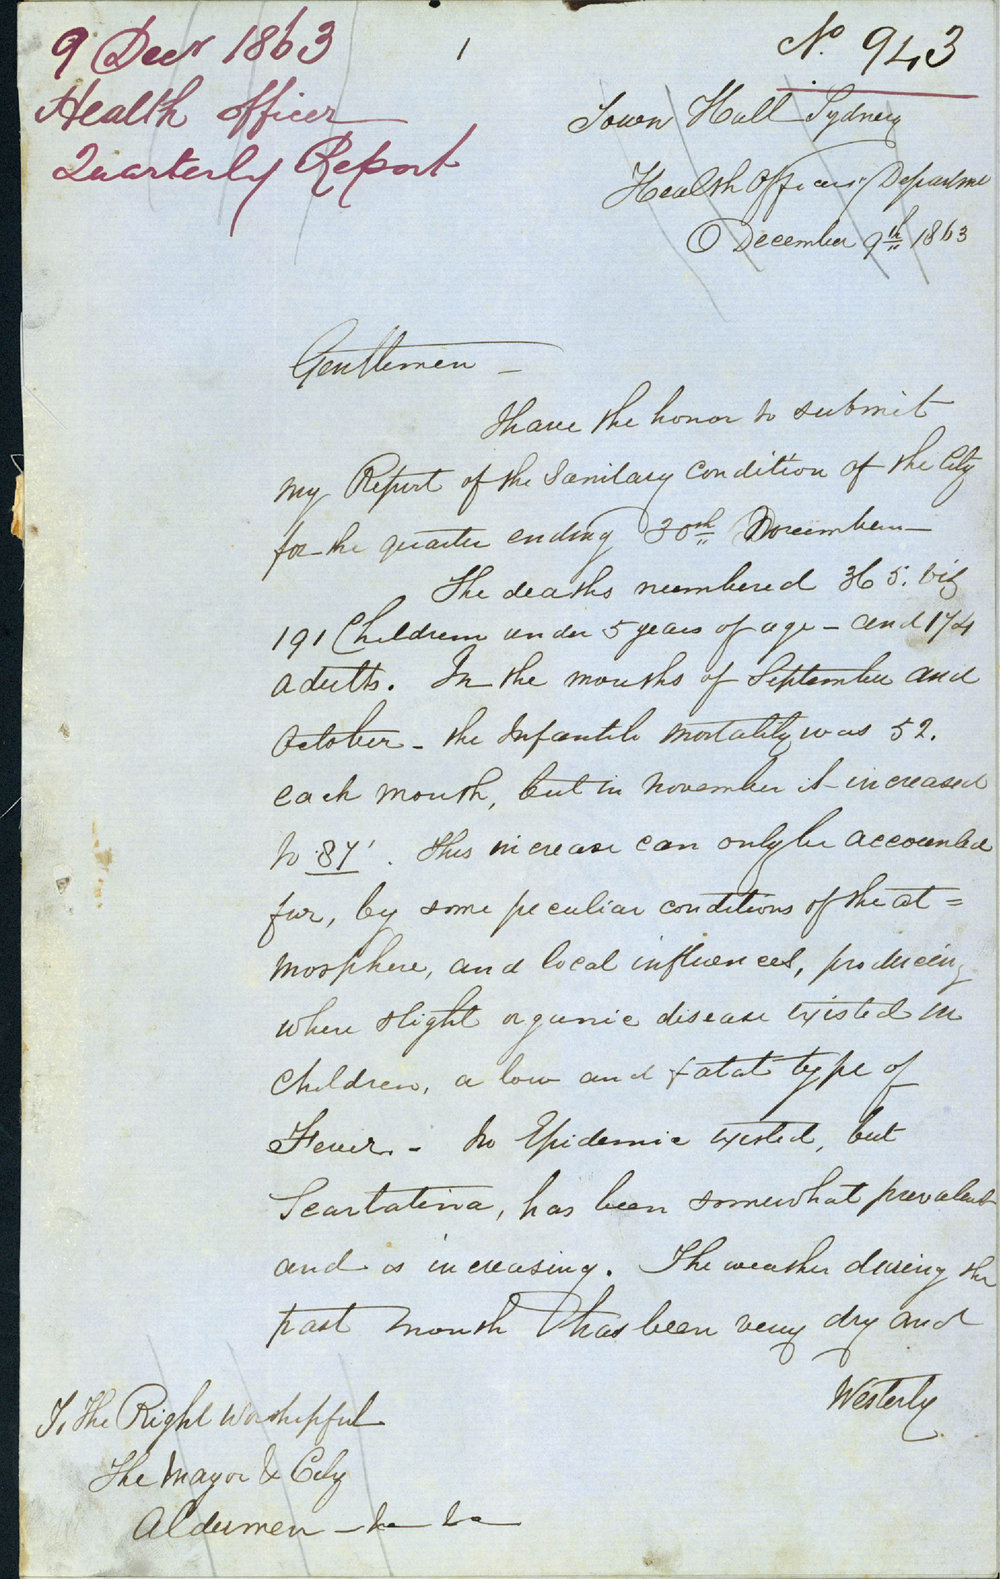 9 Decr 1863
Health Officer
Quarterly Report
1
No. 943
Town Hall Sydney
Health Officers Departme
December 9th 1863
Gentlemen -
I have the honor to submit
my Report of the Sanitary Condition of the City
for the quarter ending 30th November -
The deaths numbered 365. viz
191 Children under 5 years of age - and 174
adults. In the months of September and
October - the Infantile Mortality was 52.
each month, but in November it increased
to 87. This increase can only be accounted
for, by some peculiar conditions of the at=
mosphere, and local influences, producing
where slight organic disease existed in
Children, a low and fatal type of
Fever. - No Epidemic existed, but
Scarlatina, has been somewhat prevalent
and is increasing. The weather during the
past month has been very dry and
Westerly.
To The Right Worshipful
The Mayor & City
Aldermen